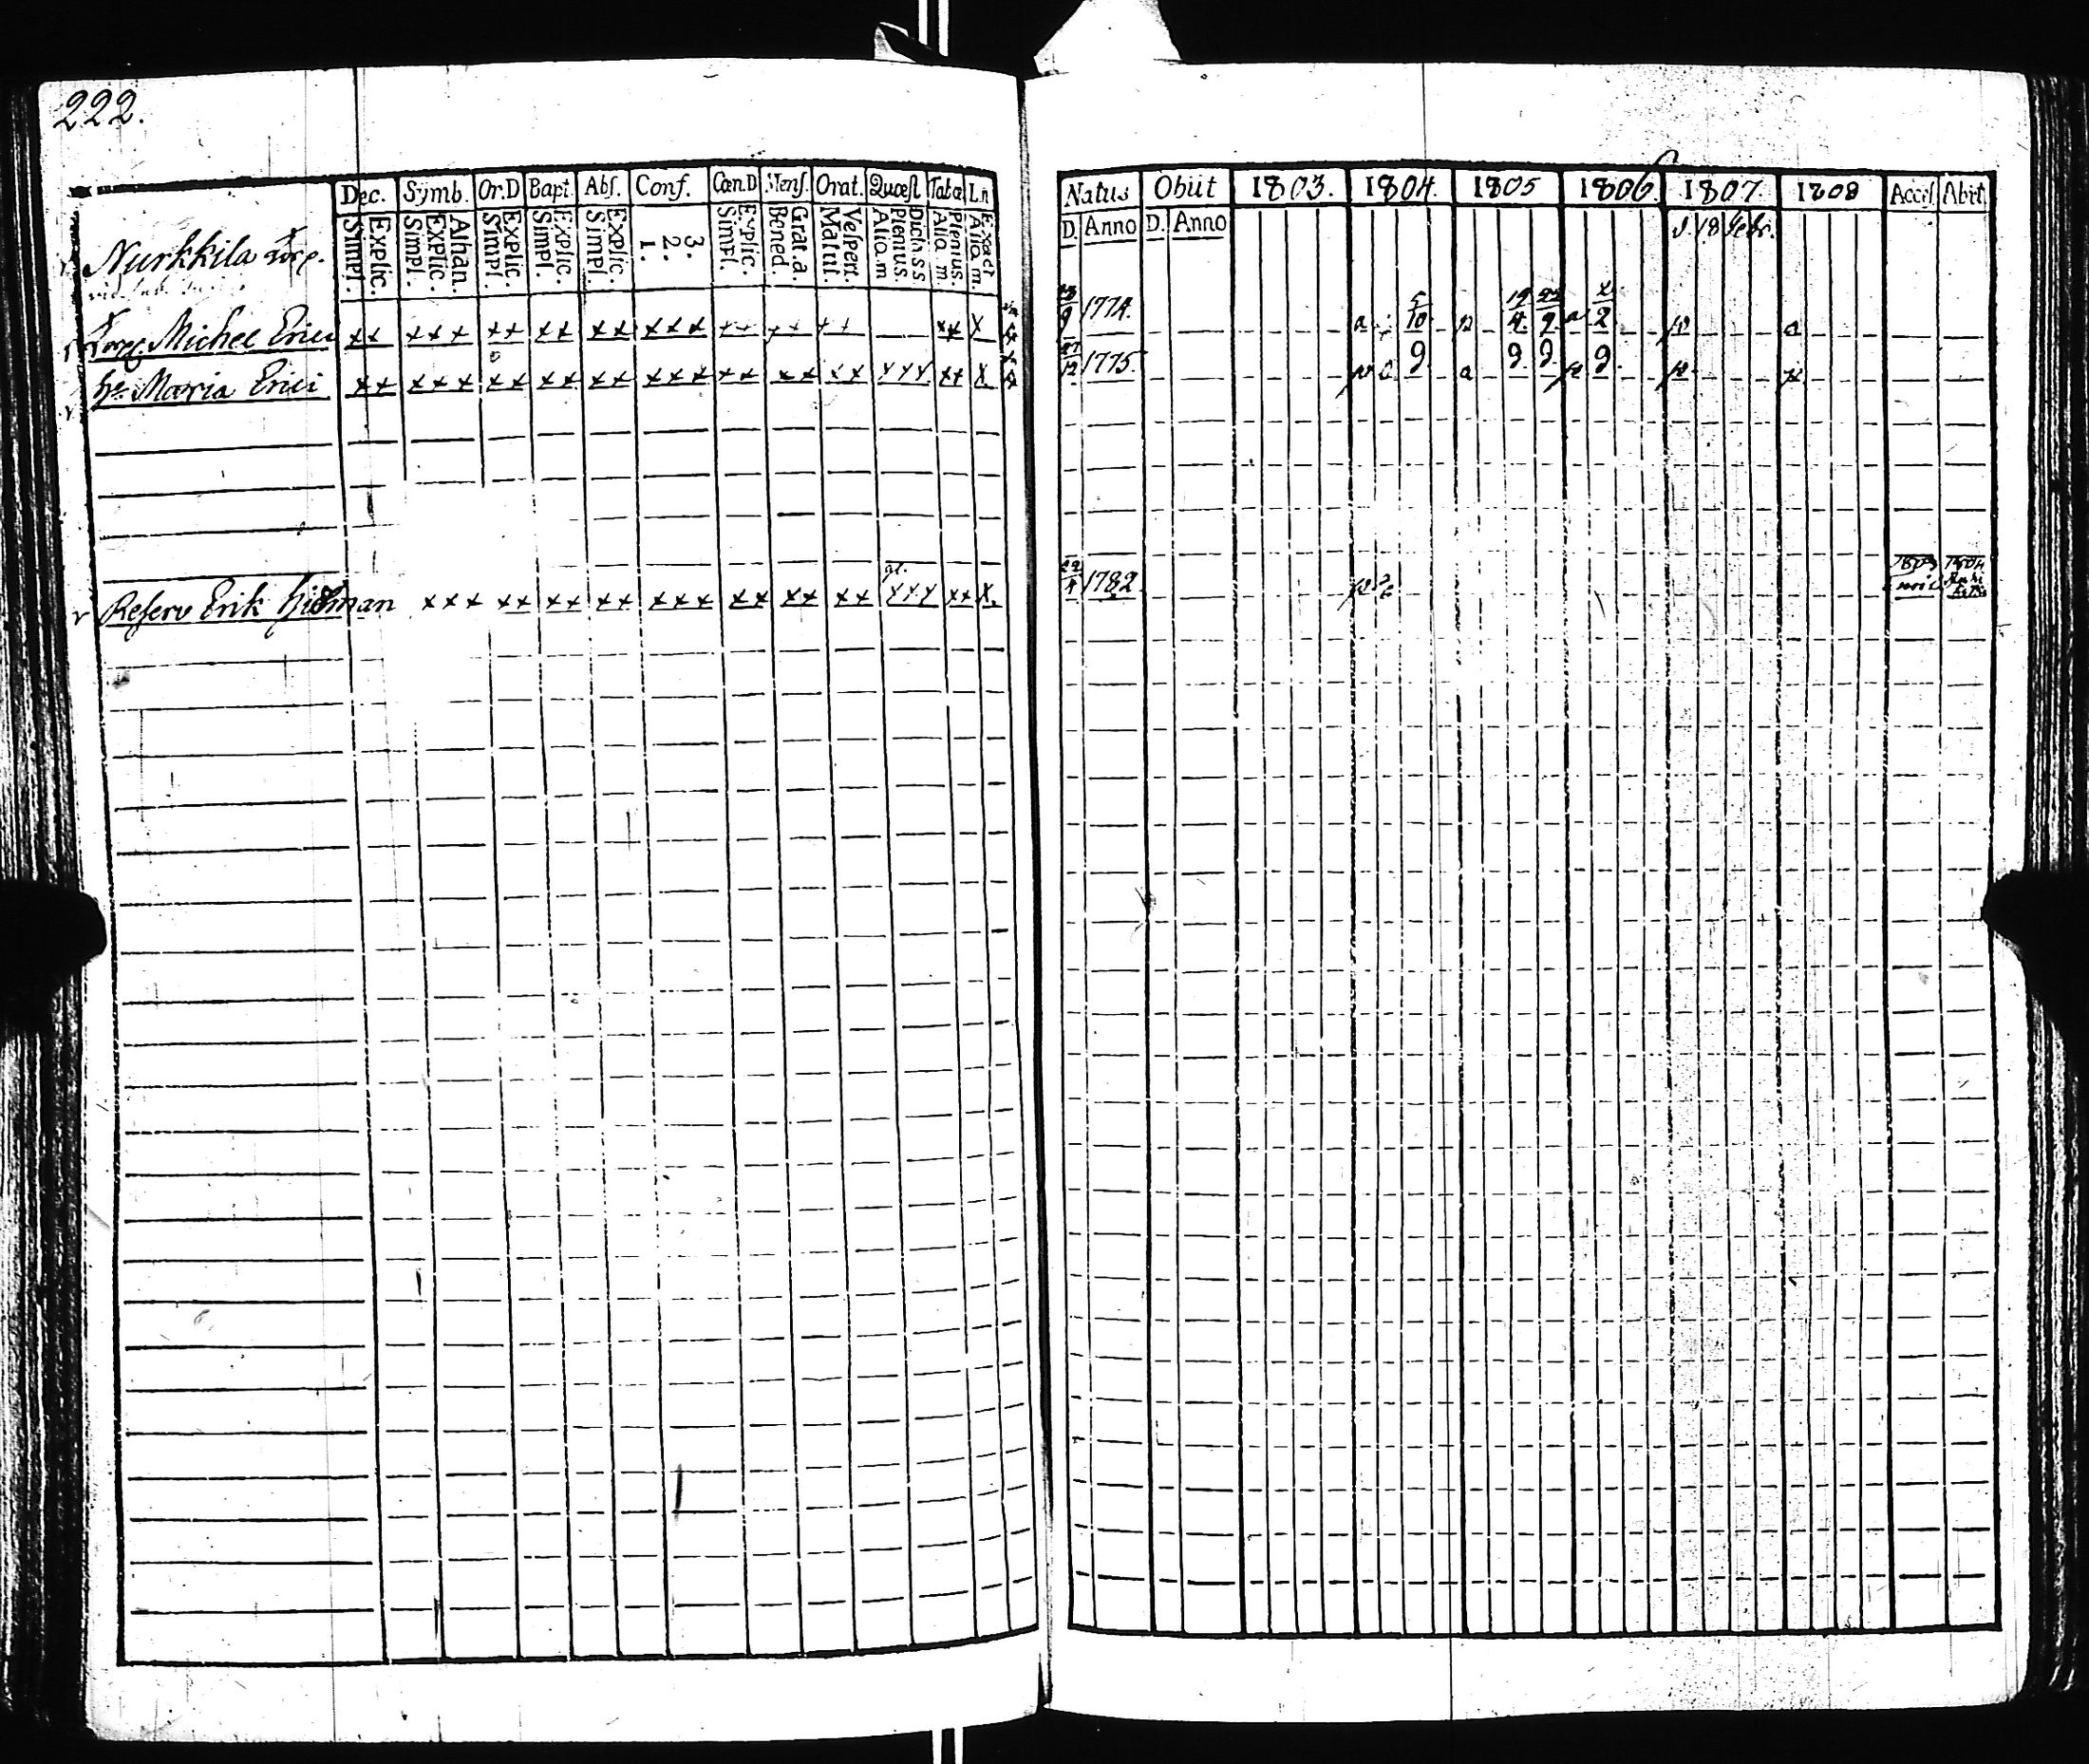 222.
Dec. Symb. Or.D Bapt. Abſ. Conf. Cœn.D Menſ. Orat. Quœſt Taba L.n
Simpl. Explic. Simpl. Explic. Athan. Simpl. Explic. Simpl. Explic. Simpl. Explic. 1. 2. 3. Simpl. Explic. Bened. Grat.a. Matut. Veſpert. Aliq.m Plenius. Dicta S.S. Aliq.m Plenius. Aliq.m. Exact
Nurkkila Torp.
Torp. Michel Erici xx xxx xx xx xx xxx xx xx xx xx x
h. Maria Erici xx xxx xx xx xx xxx xx xx xx xxx xx x
Reserv Erik Hidman xxx xx xx xx xxx xx xx xx xxx xx x.
Natus Obiit 1803. 1804. 1805 1806. 1807. 1808 Acceſ. Abiit
D. Anno D. Anno d. 18 Febr.
1774. a 5/10 p 19/4 22/9 a p a
27/12 1775. p g. a g. g. p g. p p
1782. p 1803 1804